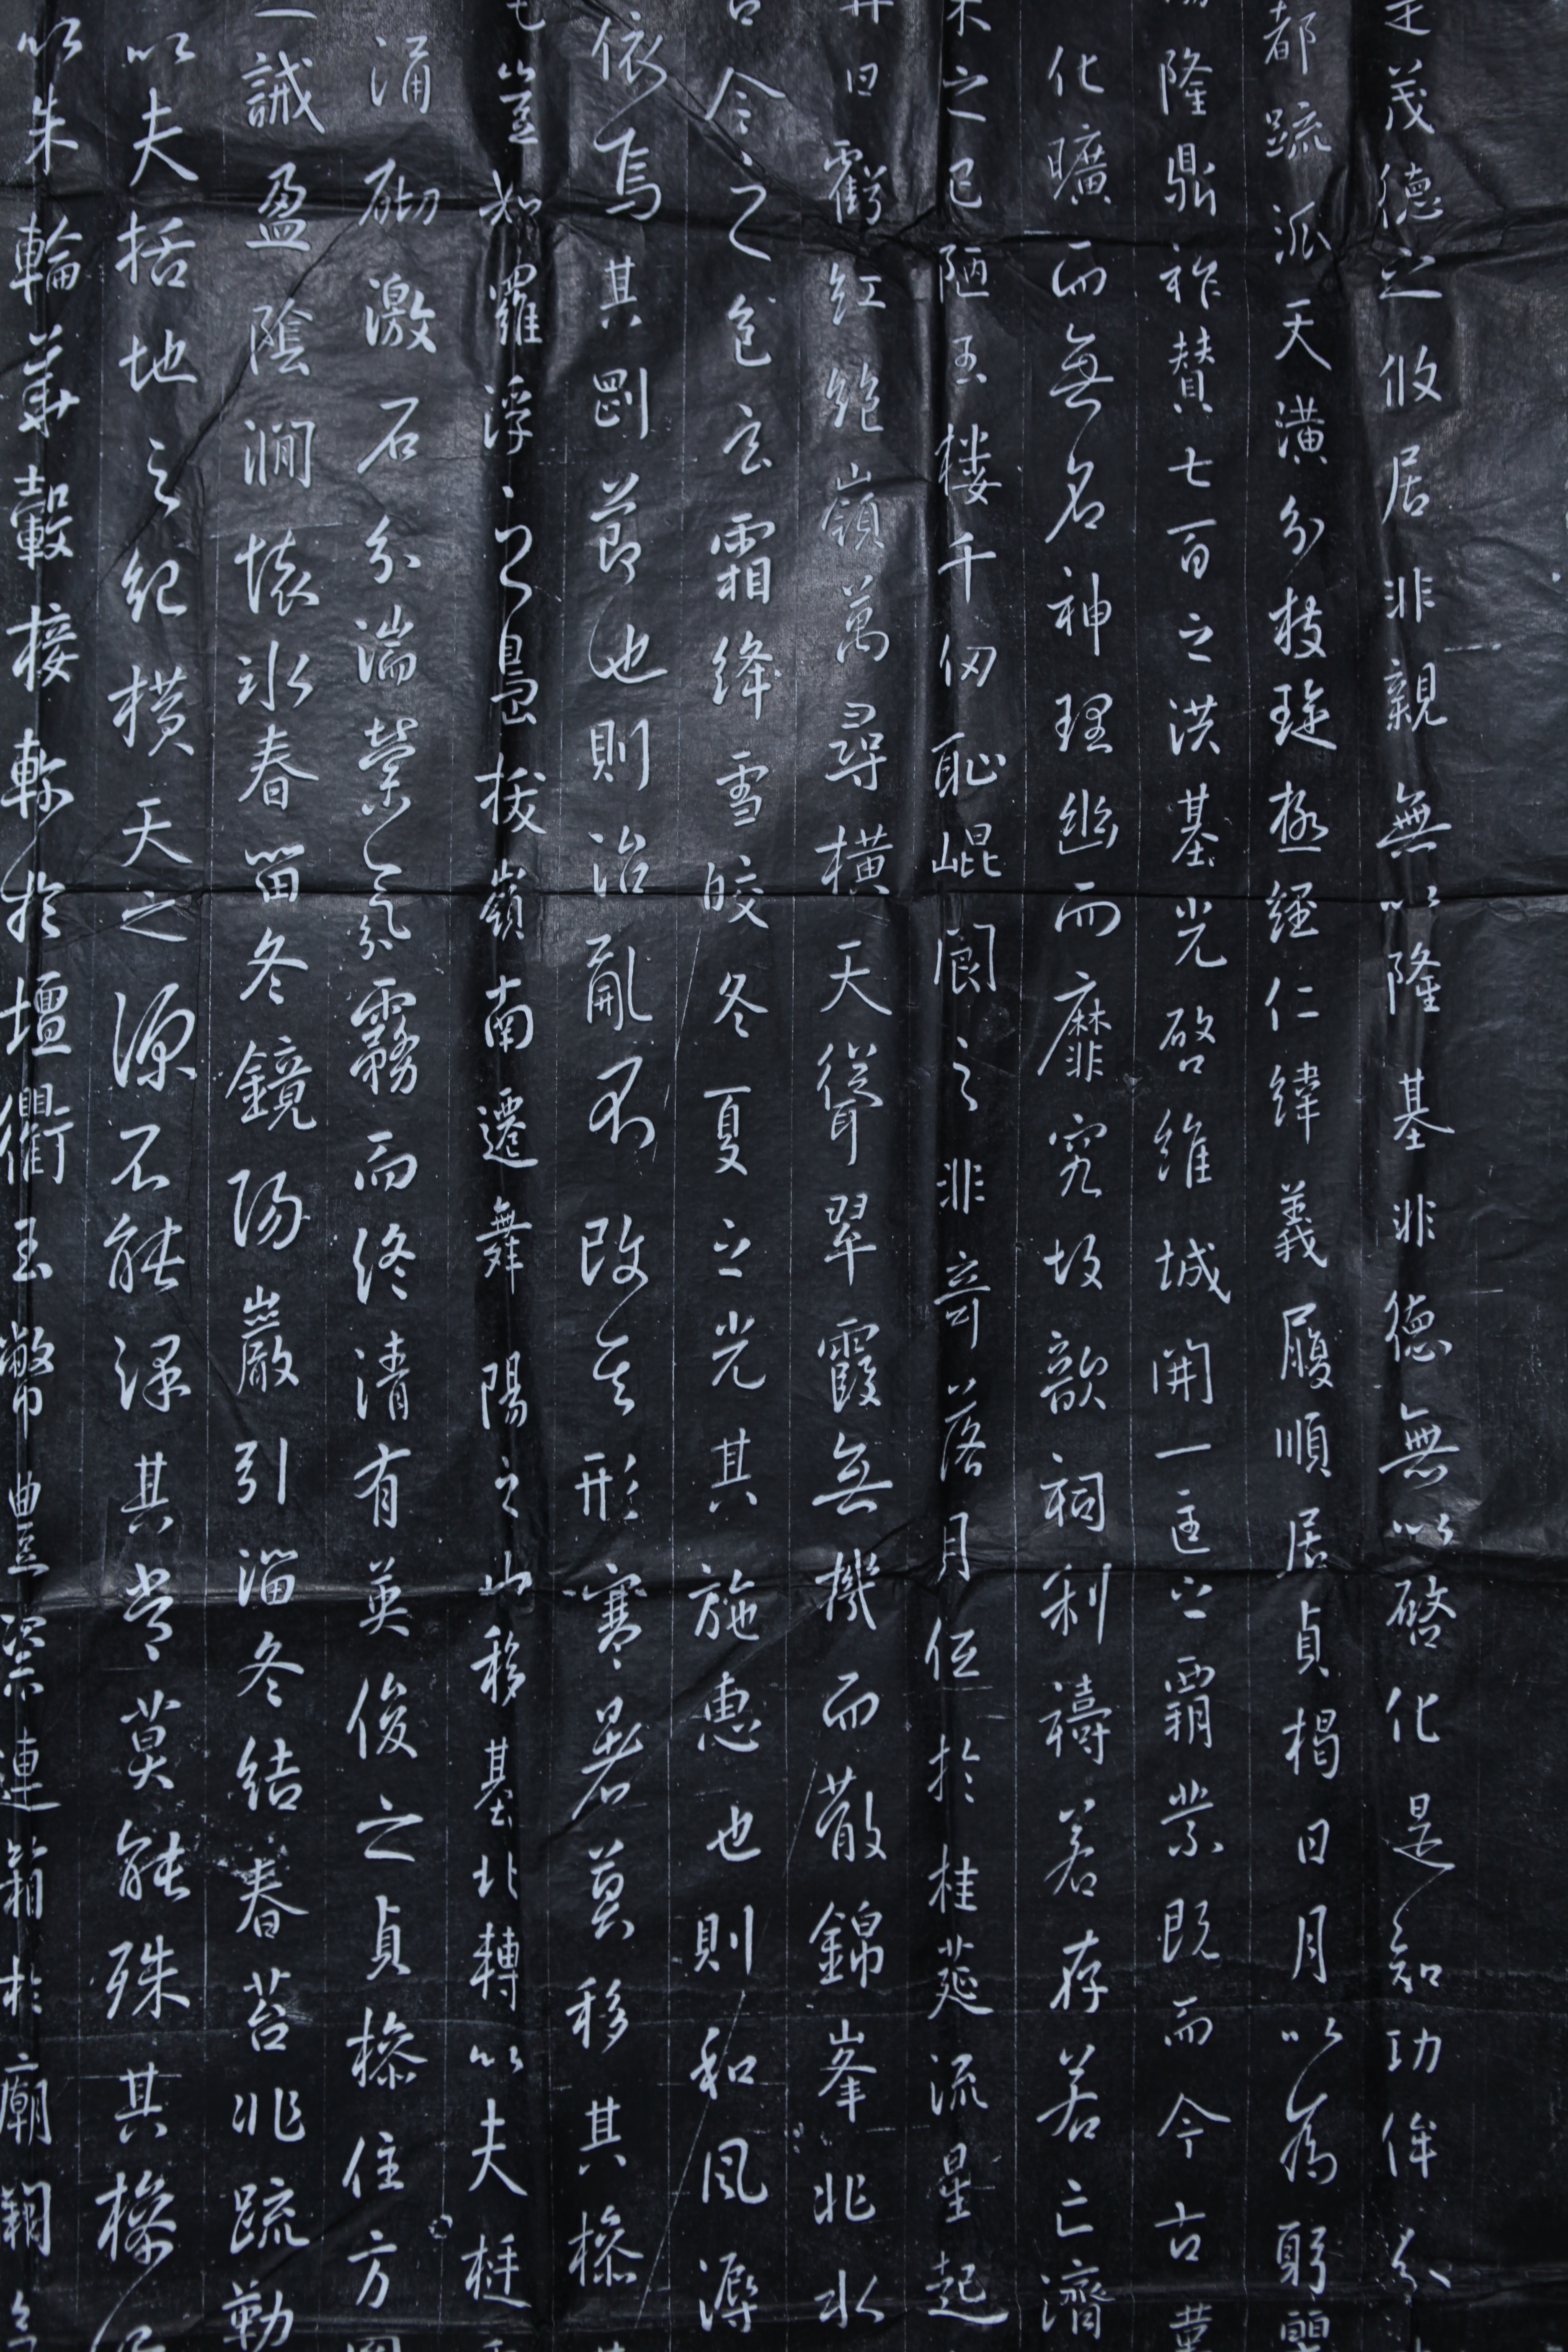 是茂德之攸居非親無以隆基非德無以啓化是知功侔分
都疏派天潢分枝琁極經仁緯義履順居貞揭日月以為躬
隆鼎祚贊七百之洪基光啓維城開一匡之霸業既而今古
化曠而無名神理幽而靡究故歆祠利禱若存若亡濟
朱之已陋玉樓千仞恥崐閬之非奇落月低於桂莚流星起
昇日虧紅絕嶺萬尋橫天聳翠霞無機而散錦峯非水
含令之色玄霜絳雪皎冬夏之光其施惠也則和風溽
依焉其剛節也則治亂不改其形寒暑莫移其操
豈如羅浮之島拔嶺南遷舞陽之山移基北轉以夫挺
涌砌激石分湍縈氛霧而終清有英俊之貞操住方
一誡盈陰澗懷冰春留冬鏡陽巖引溜冬結春苔非疏勒
以夫括地之紀橫天之源不能澤其常莫能殊其操
以朱輪華轂接軫於壇衢玉幣豊粢連箱於廟闕